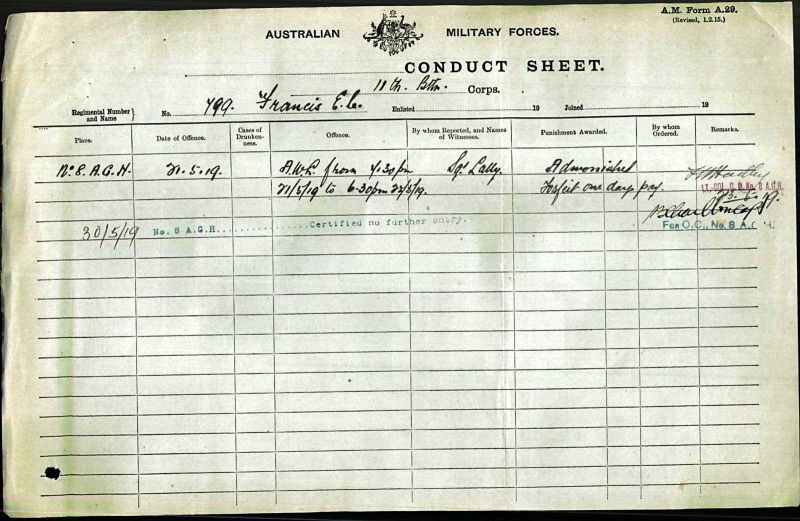 A.M. Form A.29.
(Revised, 1.2.15.)
AUSTRALIAN MILITARY FORCES.
CONDUCT SHEET.
11th. Btn. Corps.
Regimental Number and Name No. 799. Francis E.C. Enlisted 19 Joined 19
Place. Date of Offence. Cases of Drunkenness. Offence. By whom Reported, and Names of Witnesses. Punishment Awarded. By whom Ordered. Remarks.
No 8. A.G.H. 21.5.19. A.W.L. from 4.30pm Sgt Lally. Admonished
21/5/19 to 6.30pm 22/5/19. Forfeit one days pay.
LT.-COL. C.O. No. 8 A.G.H.
23.5.19.
30/5/19 No. 8 A.G.H. Certified no further entry. For O.C., No. 8 A.G.H.